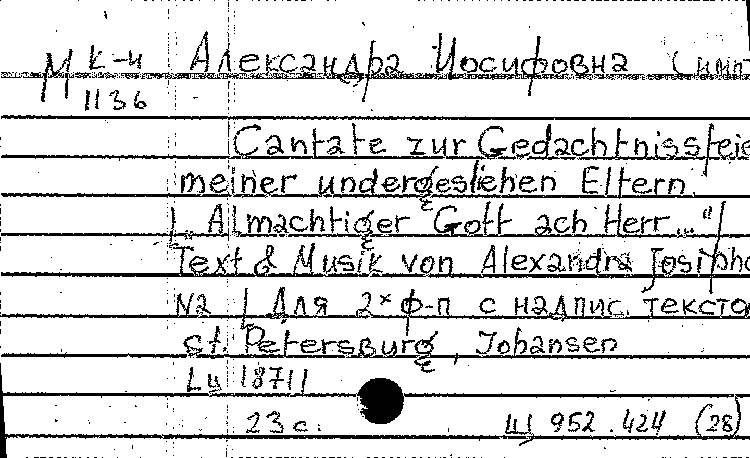 М к-и 1136 Александра Иосифовна (имп
Cantate zur Gedachtnissfeie
meiner undergeslichen Eltern.
/„Almachtiger Gott ach Herr..."/
Text & Musik von Alexandra Josipho
№2 / Для 2× ф-п с надпис. тексто
St. Petersburg, Johansen
Ц 18711
23 с. Щ 952.424 (28)